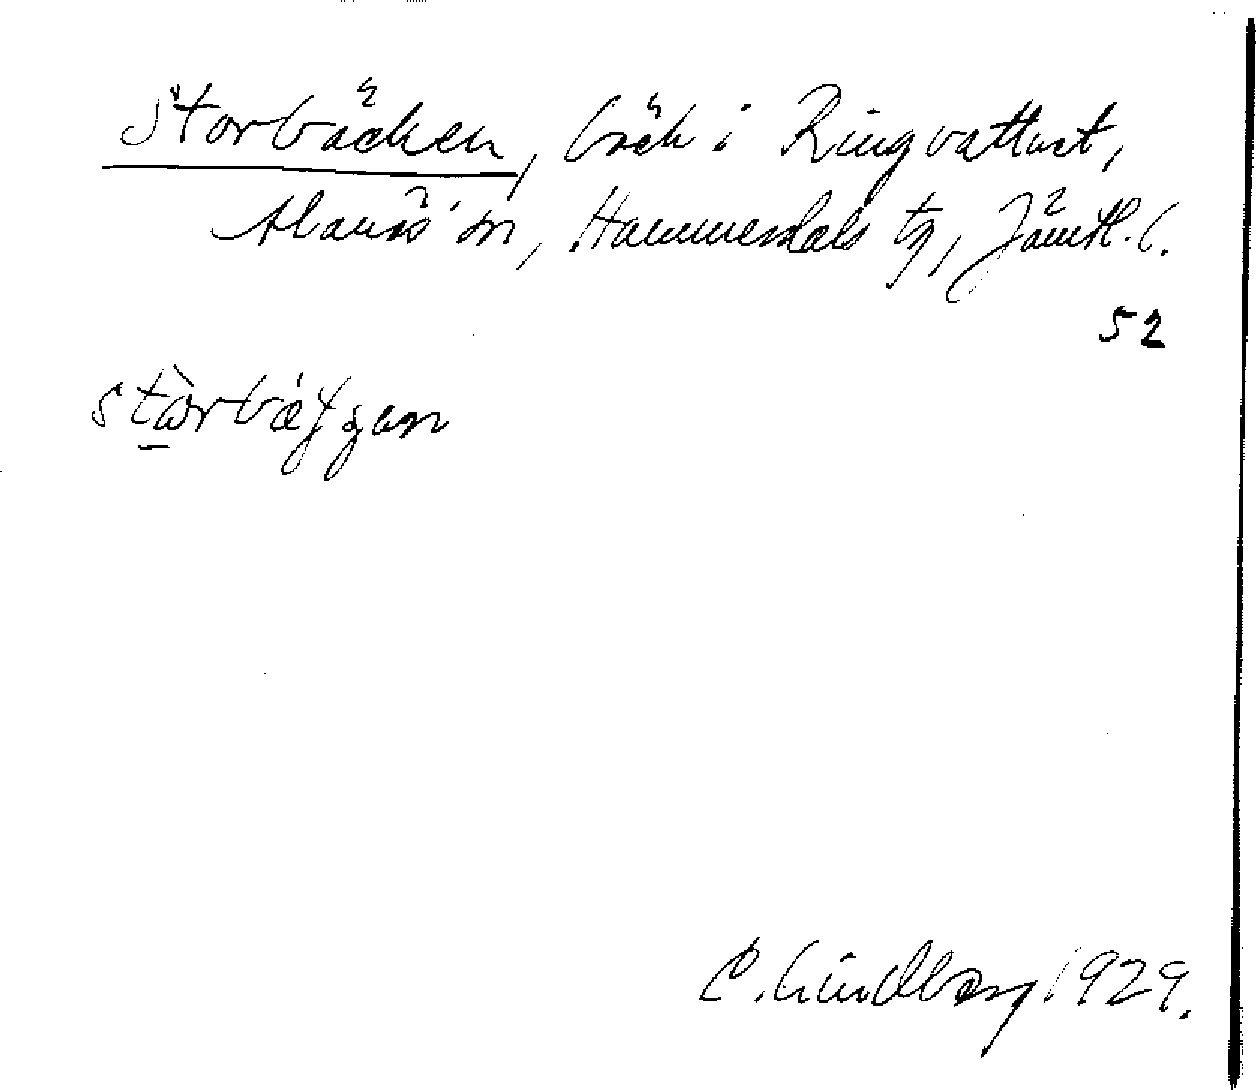 Storbäcken, bäck i Ringvattnet,
Alanäs sn, Hammerdals tg, Jämtl. l.
52
C. Lindberg 1929.